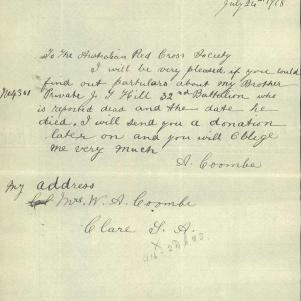 July 24th 1918
To The Australian Red Cross Society
I will be very pleased if you could
find out particulars about my Brother
Private J. T. Hill 32nd Battalion who
is reported dead and the date he
died. I will send you a donation
later on and you will Oblige
me very much
A. Coombe
My address
Mrs. W. A. Coombe
Clare S. A.